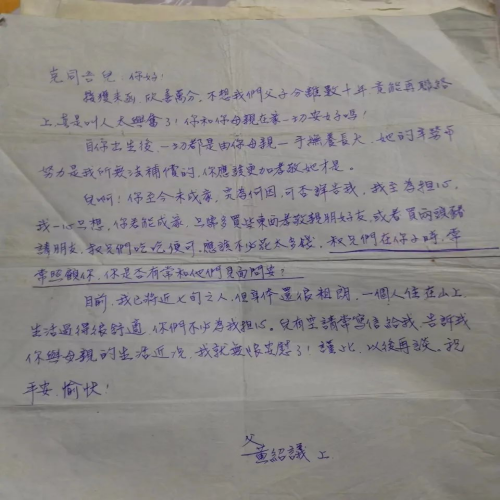 克同吾兒:你好!
接獲来函欣喜萬分,不想我們父子分離數十年竟能再聯絡
上,真是叫人太興奮了!你和你母親在家一切安好嗎!
自你出生後一切都是由你母親一手撫養長大,她的辛勞而
努力是我所無法補償的,你應該更加孝敬她才是。
兒啊!你至今未成家,究為何因,可否詳告我,我至為担心。
我一心只想,你若能成家,只需多買些東西孝敬親朋好友,或者買兩頭豬
請朋友、叔兄們吃吃便可,應該不必花太多錢,叔兄們在你小時,常
常照顧你,你是否有常和他們見面問安?
目前,我已將近七旬之人,但身体還很粗朗,一個人住在山上
生活過得很舒適,你們不必為我担心。兒有空請常寫信給我,告訴我
你與母親的生活近況,我就無限安慰了!謹此,以後再談。祝
平安.愉快!
父
黄紹議 上